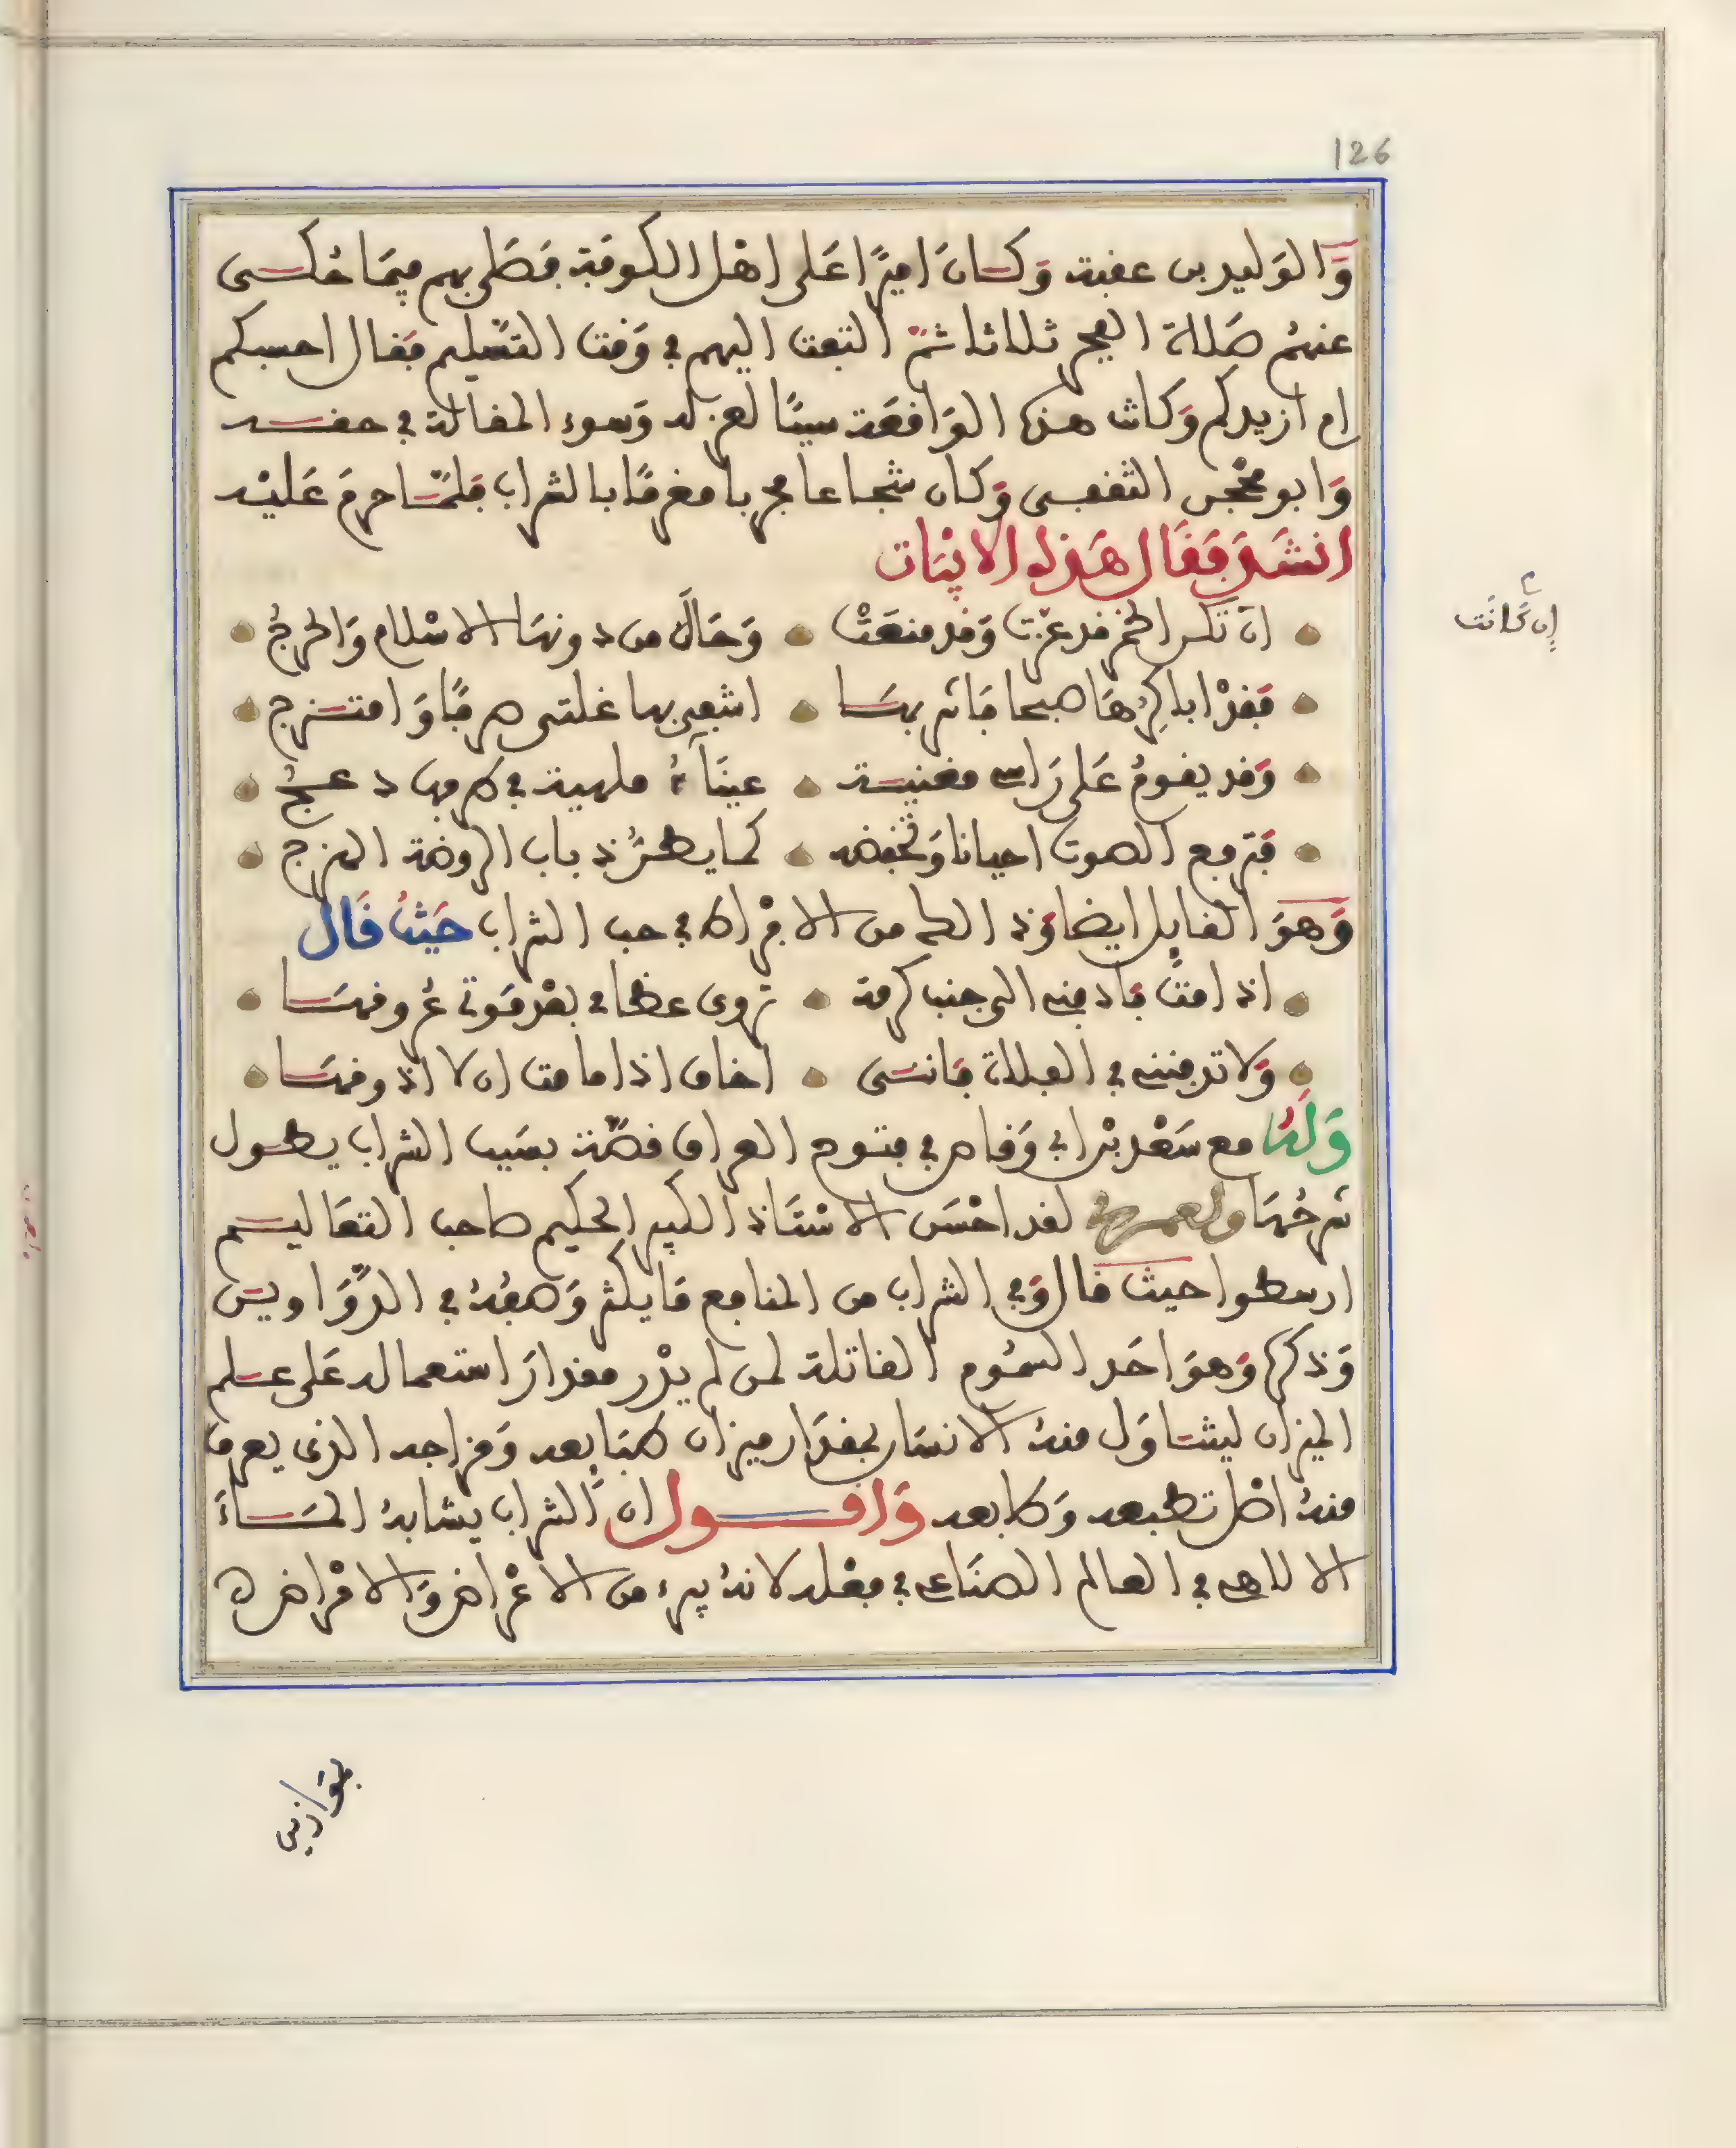 126
وَالوَليد بن عقبة وَكانَ اميرًا عَلى اهْل الكوفَة فصَلى بهم فيمَا حُكى
عنهُم صَلاة الفجر ثلاثا ثمّ التفت اليهم في وَقت التسْليم فقال احسبكم
ام ازيدكم وَكانت هذه الوَاقعَة سببًا لعزله وَسوء المقالة في حقه
وَابو محْجن الثقفى وَكان شجاعا مجربا مغرمًا بالشراب فلمّا حرمَ عَليْه
انشدَ فقَال هَذه الابْيَات
ان تكن الخمر قد عزّت وَقد منعَتْ وَحَالَ من دونهَا الاسْلام وَالحرجُ
فقدْ اباكِرُهَا صبحا فَاشربهَا اشفى بها غلتى صرفًا وَامتزج
وَقد يقومُ عَلى رَاسى مغنية عينَآءُ ملهية في طرفها دعجُ
فترفع الصوت احيانا وَتخفضه كما يطنُّ ذباب الروضة الهزج
وَهوَ القايل ايضا وَذالك من الافْراط في حب الشراب حَيْثُ قَال
اذا متُّ فادفنى الى جنب كرمة تروى عظامى بعْد مَوتى عُروقهَا
وَلا تدفننى في الفلاة فانى اخاف اذا ما مت ان لا اذوقهَا
وَلهُ مع سَعْد بْن ابي وَقاص في فتوح العراق قصّة بسَبب الشراب يطول
شرحُهَا ولعمرى لقد احْسَن الاسْتَاذ الكبير الحكيم صَاحب التعَاليم
ارسطوا حيث قال وَفي الشراب من المنافع مَا يكثر وَصفُهُ في الدَّوَاوين
وَذكرها وَهوَ احَد السمُوم القاتلة لمن لم يدْر مقدارَ استعماله عَلى علم
الميزان ليتناوَل منهُ الانسَان بمقدَار ميزان طبَايعه وَمزاجه الذى يعرف
منهُ اصْل تطبعه وَطابعه وَاقول ان الشراب يشابهُ المَاءَ
الالاهى في العالم الصنَاعى في فعْله لانهُ يبرء من الاعْراض وَالامْراض ه
ان كَانَت
بمَوَازين